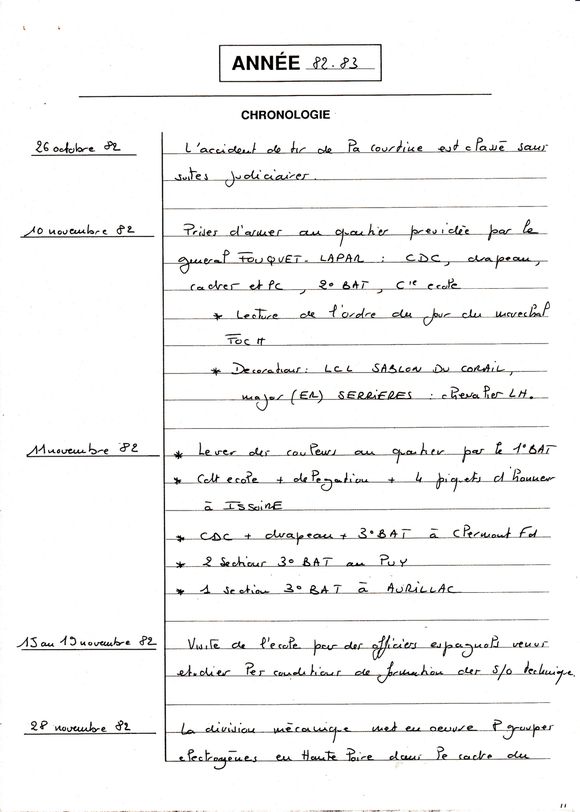 ANNÉE 82.83
CHRONOLOGIE
26 octobre 82 L'accident de tir de la courtine est classé sans
suites judiciaires.
10 novembre 82 Prises d'armes au quartier presidée par le
general FOUQUET. LAPAR : CDC, drapeau,
cadres et PC, 2° BAT, Cie ecole
* Lecture de l'ordre du jour du marechal
FOCH
* Decorations : LCL SABLON DU CORAIL,
major (ER) SERRIERES : chevalier LH.
11 novembre 82 * Lever des couleurs au quartier par le 1° BAT
* Cdt ecole + delegation + 4 piquets d'honneur
à ISSOIRE
* CDC + drapeau + 3° BAT à Clermont Fd
* 2 Sections 3° BAT au PUY
* 1 section 3° BAT à AURILLAC
15 au 19 novembre 82 Visite de l'ecole par des officiers espagnols venus
etudier les conditions de formation des S/O technique.
28 novembre 82 La division mécanique met en oeuvre 8 groupes
electrogènes en Haute Loire dans le cadre du